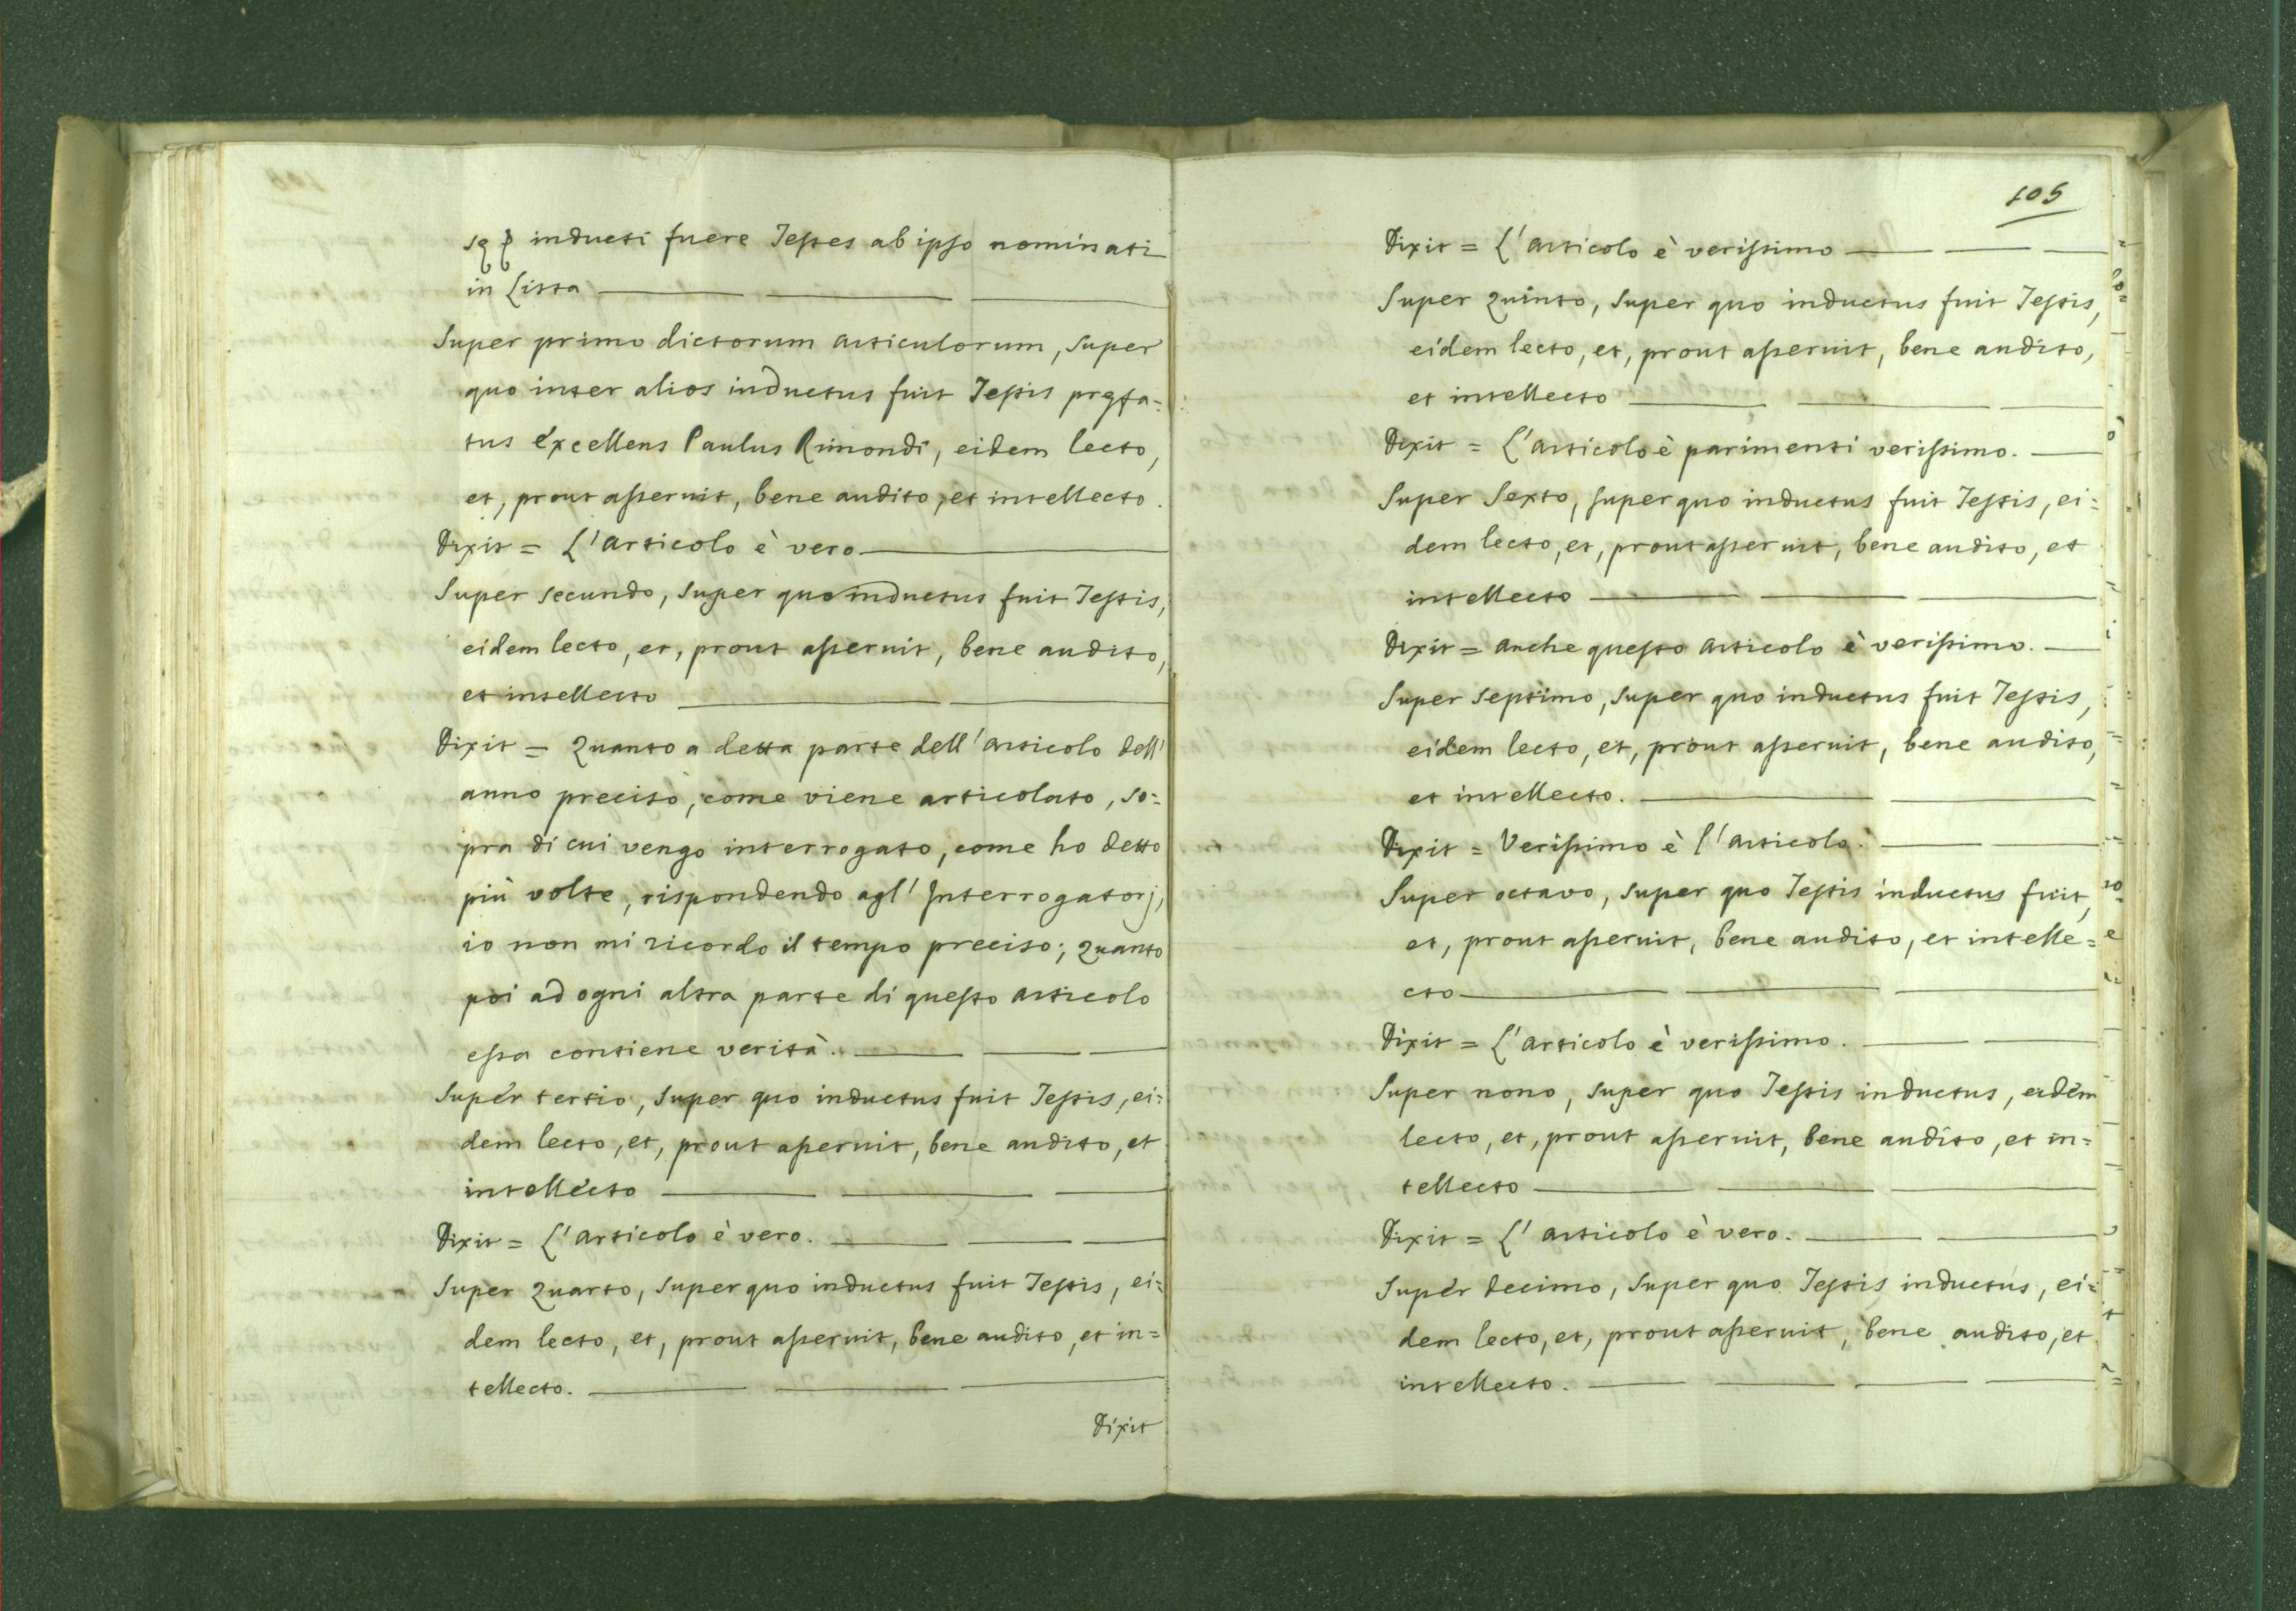 inducti fuere Testes ab ipso nominati
in Lista
Super primo dictorum articulorum, super
quo inter alios inductus fuit Testis prefa=
tus Excellens Paulus Rimondi, eidem lecto,
et, prout asseruit, bene audito, et intellecto.
Dixit = L'articolo è vero
Super secundo, super quo inductus fuit Testis,
eidem lecto, et, prout asseruit, bene audito,
et intellecto
Dixit = Quanto a detta parte dell'articolo dell'
anno preciso, come viene articolato, so=
pra di cui vengo interrogato, come ho detto
più volte, rispondendo agl'Interrogatorj,
io non mi ricordo il tempo preciso; quanto
poi ad ogni altra parte di questo articolo
essa contiene verità.
Super tertio, super quo inductus fuit Testis, ei=
dem lecto, et, prout asseruit, bene audito, et
intellecto
Dixit = L'articolo è vero.
Super Quarto, super quo inductus fuit Testis, ei=
dem lecto, et, prout asseruit, bene audito, et in=
tellecto.
Dixit
105
Dixit = L'articolo è verissimo
Super Quinto, super quo inductus fuit Testis,
eidem lecto, et, prout asseruit, bene audito,
et intellecto
Dixit = L'articolo è parimenti verissimo.
Super Sexto, super quo inductus fuit Testis, ei=
dem lecto, et, prout asseruit, bene audito, et
intellecto
Dixit = anche questo articolo è verissimo.
Super septimo, super quo inductus fuit Testis,
eidem lecto, et, prout asseruit, bene audito,
et intellecto.
Dixit = Verissimo è l'articolo.
Super octavo, super quo Testis inductus fuit,
et, prout asseruit, bene audito, et intelle=
cto
Dixit = L'articolo è verissimo.
Super nono, super quo Testis inductus, eidem
lecto, et, prout asseruit, bene audito, et in=
tellecto
Dixit = L'articolo è vero.
Super decimo, super quo Testis inductus, ei=
dem lecto, et, prout asseruit, bene audito, et
intellecto.